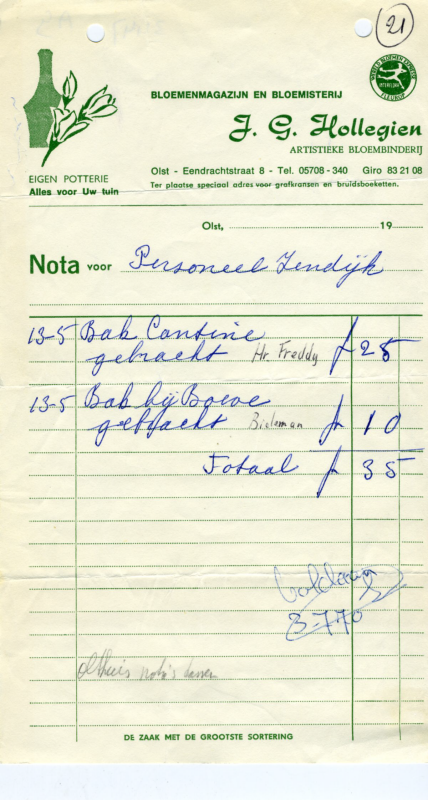 21
BLOEMENMAGAZIJN EN BLOEMISTERIJ
FLEUROP
J. G. Hollegien
ARTISTIEKE BLOEMBINDERIJ
EIGEN POTTERIE
Alles voor Uw tuin
Olst - Eendrachtstraat 8 - Tel. 05708 - 340 Giro 83 21 08
Ter plaatse speciaal adres voor grafkransen en bruidsboeketten.
Olst, 19
Nota voor Personeel Zendijk
13-5 Bak Cantine
gebracht Hr. Freddy f 25
13-5 Bak bij Boeve
gebracht Bieleman f 10
Totaal f 35
Voldaan
3-7-70
Olthuis
DE ZAAK MET DE GROOTSTE SORTERING